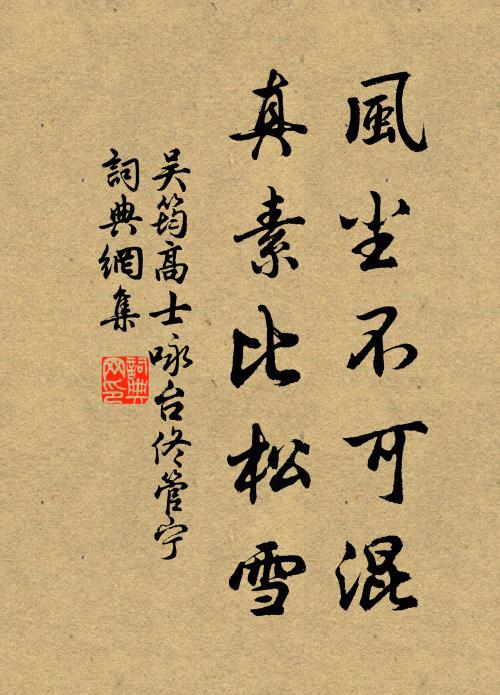 風尘不可混
真素比松雪
吴筠高士咏台佟管宁
詞典網集
詞典
网印